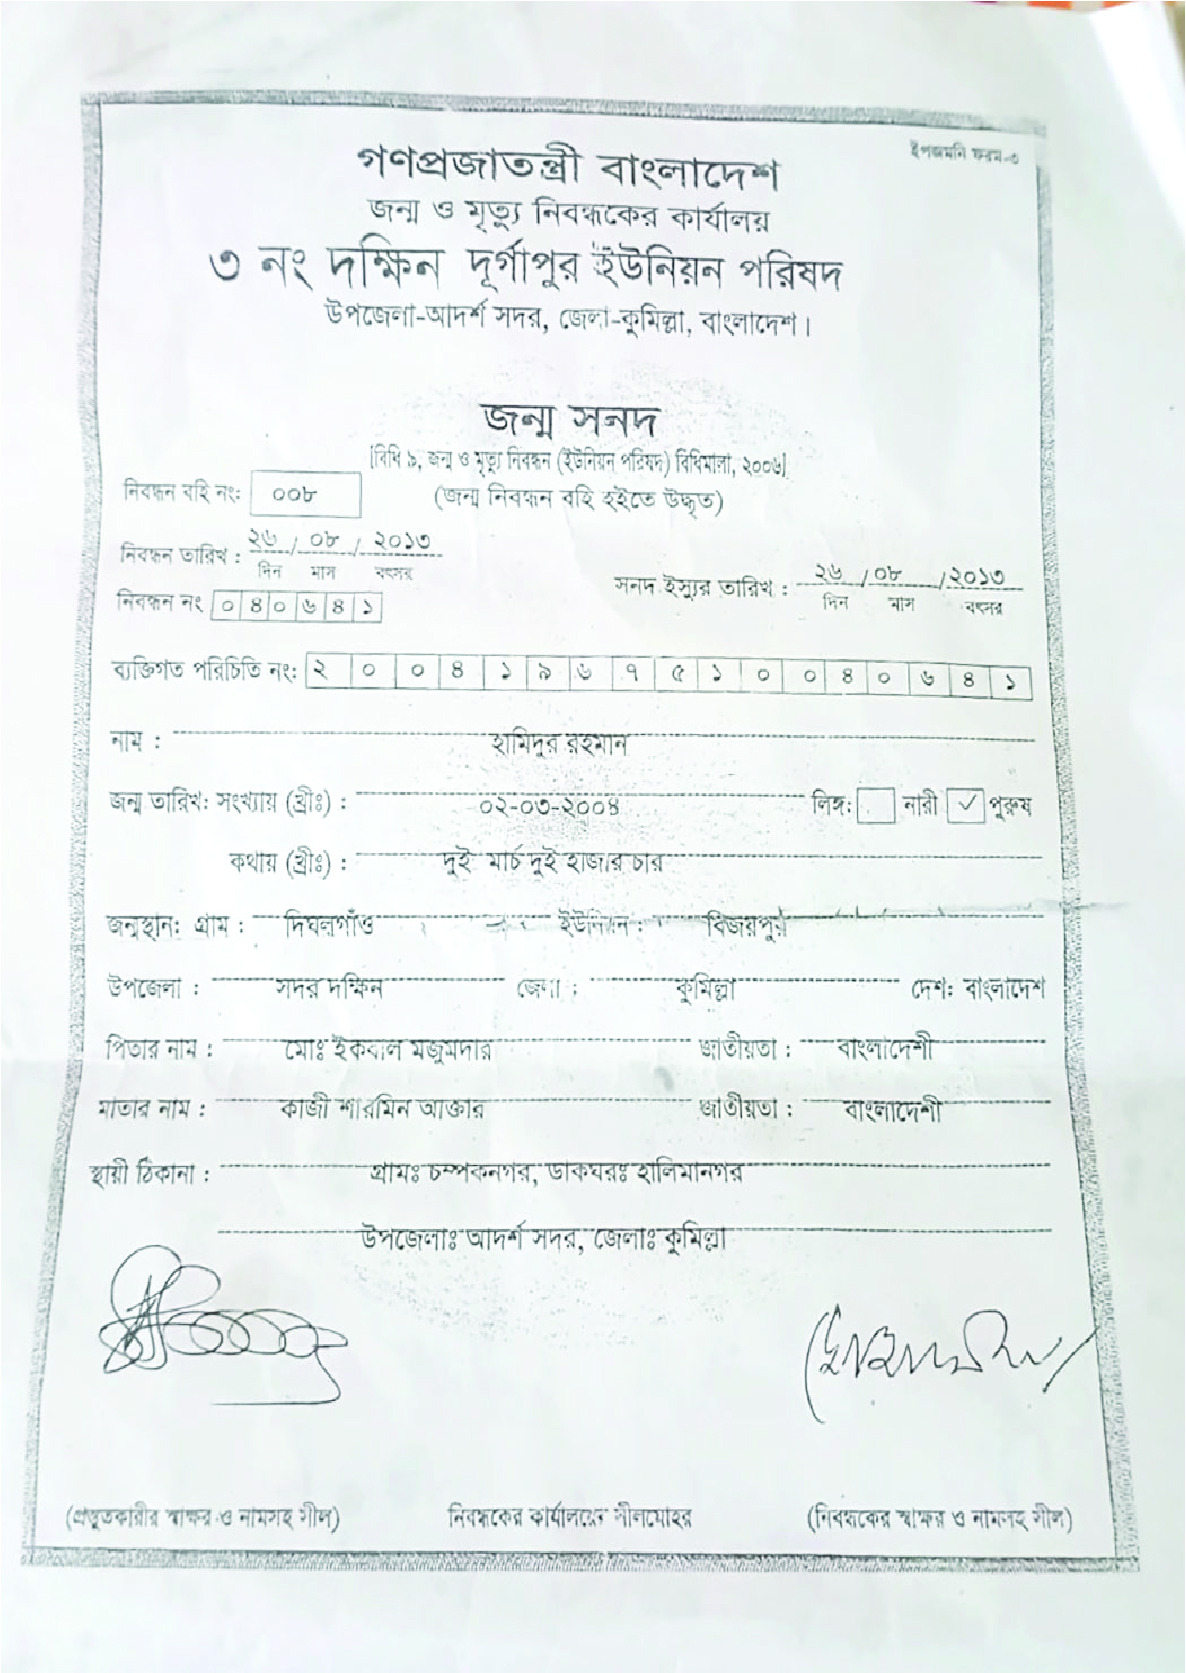 ইপজমনি ফরম-৩
গণপ্রজাতন্ত্রী বাংলাদেশ
জন্ম ও মৃত্যু নিবন্ধকের কার্যালয়
৩ নং দক্ষিন দূর্গাপুর ইউনিয়ন পরিষদ
উপজেলা-আদর্শ সদর, জেলা-কুমিল্লা, বাংলাদেশ।
জন্ম সনদ
[বিধি ৯, জন্ম ও মৃত্যু নিবন্ধন (ইউনিয়ন পরিষদ) বিধিমালা, ২০০৬]
নিবন্ধন বহি নং: ০০৮ (জন্ম নিবন্ধন বহি হইতে উদ্ধৃত)
নিবন্ধন তারিখ : ২৬ / ০৮ / ২০১৩
দিন মাস বৎসর
সনদ ইস্যুর তারিখ : ২৬ / ০৮ / ২০১৩
দিন মাস বৎসর
নিবন্ধন নং ০৪০৬৪১
ব্যক্তিগত পরিচিতি নং: ২ ০ ০ ৪ ১ ৯ ৬ ৭ ৫ ১ ০ ০ ৪ ০ ৬ ৪ ১
নাম : হামিদুর রহমান
জন্ম তারিখ: সংখ্যায় (খ্রীঃ) : ০২-০৩-২০০৪ লিঙ্গ: নারী ✓ পুরুষ
কথায় (খ্রীঃ) : দুই মার্চ দুই হাজার চার
জন্মস্থান: গ্রাম : দিঘলগাঁও ইউনিয়ন : বিজয়পুর
উপজেলা : সদর দক্ষিন জেলা : কুমিল্লা দেশ: বাংলাদেশ
পিতার নাম : মোঃ ইকবাল মজুমদার জাতীয়তা : বাংলাদেশী
মাতার নাম : কাজী শারমিন আক্তার জাতীয়তা : বাংলাদেশী
স্থায়ী ঠিকানা : গ্রামঃ চম্পকনগর, ডাকঘরঃ হালিমানগর
উপজেলাঃ আদর্শ সদর, জেলাঃ কুমিল্লা
(প্রস্তুতকারীর স্বাক্ষর ও নামসহ সীল) নিবন্ধকের কার্যালয়ের সীলমোহর (নিবন্ধকের স্বাক্ষর ও নামসহ সীল)